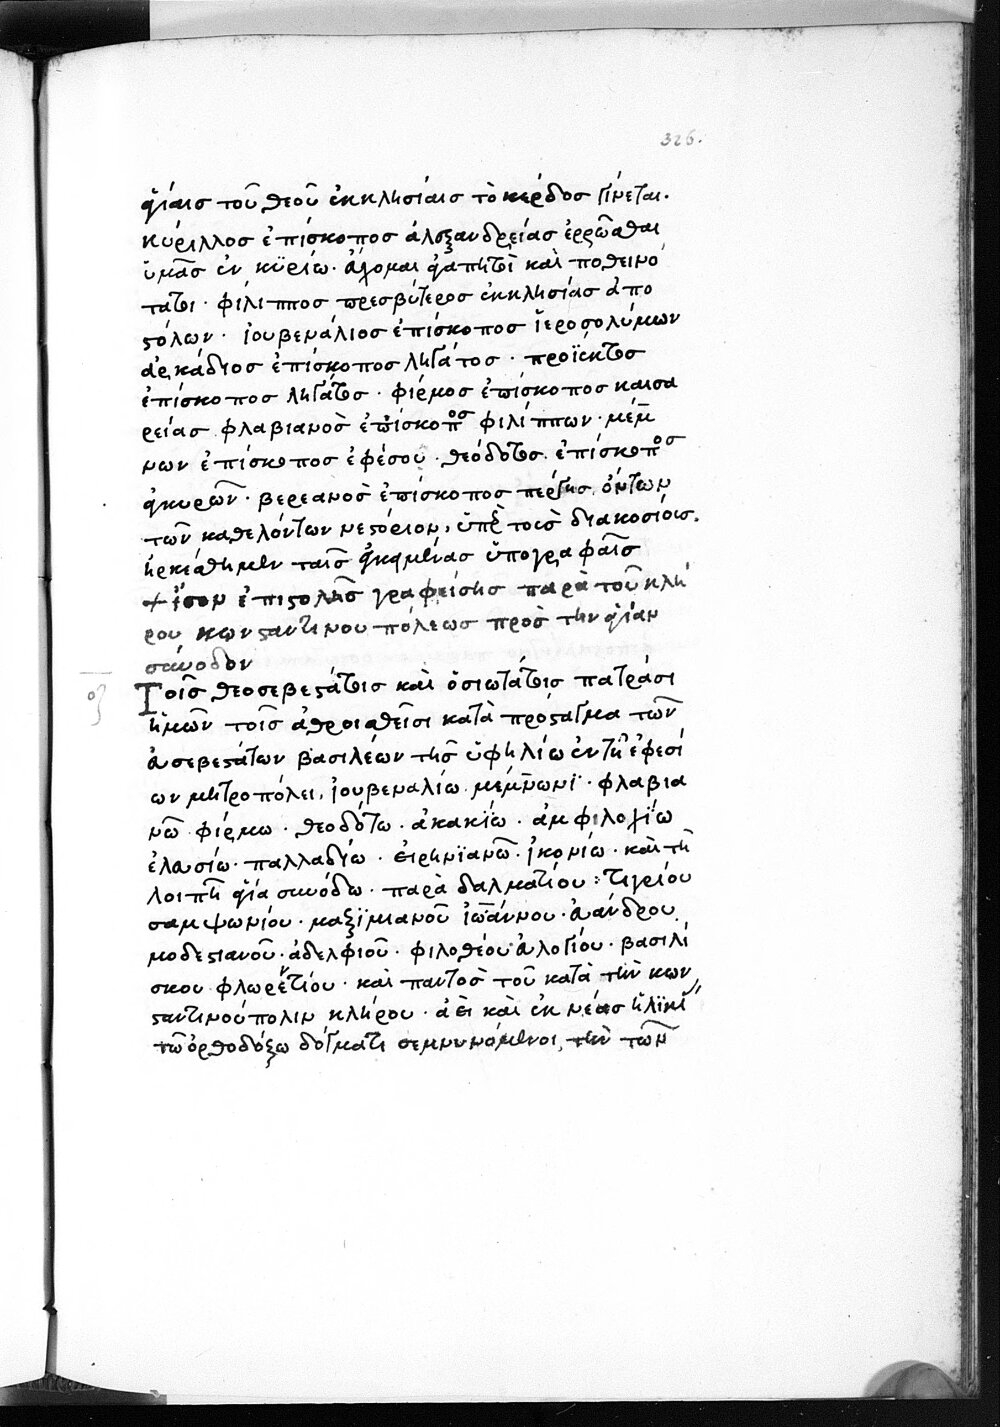 326.
ἁγίαις τοῦ θεοῦ ἐκκλησίαις τὸ κέρδος γίνεται.
κύριλλος ἐπίσκοπος ἀλεξανδρείας ἐρρῶσθαι
ὑμᾶς ἐν κϋρίω· εὔχομαι ἀγαπητοὶ καὶ ποθεινό
τατοι· φίλιππος πρεσβύτερος ἐκκλησίας ἀπο
στόλων· ἰουβενάλιος ἐπίσκοπος ἱεροσολύμων
ἀρκάδιος ἐπίσκοπος λητάτος· προϊέκτος
ἐπίσκοπος λητάτος· φίρμος ἐπίσκοπος καισα
ρείας φλαβιανὸς ἐπίσκοπος φιλίππων· μέμ
νων ἐπίσκοπος ἐφέσου· θεόδοτος ἐπίσκοπος
ἀγκυρῶν· βερεανὸς ἐπίσκοπος πέργης ὄντων
τῶν καθελόντων νεστόριον, ὑπὲρ τοὺς διακοσίους.
ἠρκέσθημεν ταῖς ἐγκειμέναις ὑπογραφαῖς
+ ἴσον ἐπιστολῆς γραφείσης παρὰ τοῦ κλή
ρου κωνσταντινουπόλεως πρὸς τὴν ἁγίαν
σύνοδον
οζ
Τοῖς θεοσεβεστάτοις καὶ ὁσιωτάτοις πατράσι
ἡμῶν τοῖς ἀθροισθεῖσι κατὰ πρόσταγμα τῶν
εὐσεβεστάτων βασιλέων τῆς ὑφηλίω ἐν τῇ ἐφεσί
ων μητροπόλει, ἰουβεναλίω· μέμνωνϊ· φλαβια
νῶ φίρμω· θεοδότω· ἀκακίω· ἀμφιλοχίω
ἑλασίω· παλλαδίω· εἰρηνϊανῶ· ἰκονίω· καὶ τῆ
λοιπῆ ἁγία συνόδω· παρὰ δαλματίου· τιγρίου
σαμψωνίου· μαξϊμιανοῦ ἰωάννου· εὐάνδρου
μοδεστιανοῦ· ἀδελφιοῦ· φιλοθέου· εὐλογίου· βασιλί
σκου φλωρεντίου· καὶ παντὸς τοῦ κατὰ τὴν κων
σταντινούπολιν κλήρου· ἀεὶ καὶ ἐκ νέας ἡλϊκί
τῶ ὀρθοδόξω δόγματι σεμνυνόμενοι, τὴν τῶν